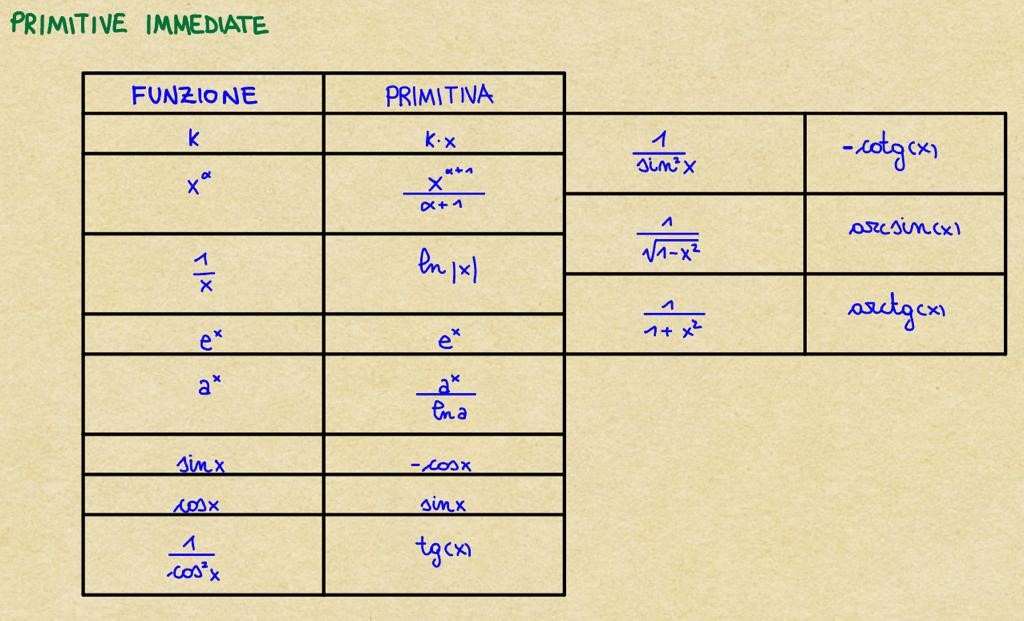 PRIMITIVE IMMEDIATE
FUNZIONE PRIMITIVA
K K·x
x^α x^(α+1)/(α+1)
1/x ln|x|
e^x e^x
a^x a^x/ln a
sinx -cosx
cosx sinx
1/cos²x tg(x)
1/sin²x -cotg(x)
1/√(1-x²) arcsin(x)
1/(1+x²) arctg(x)